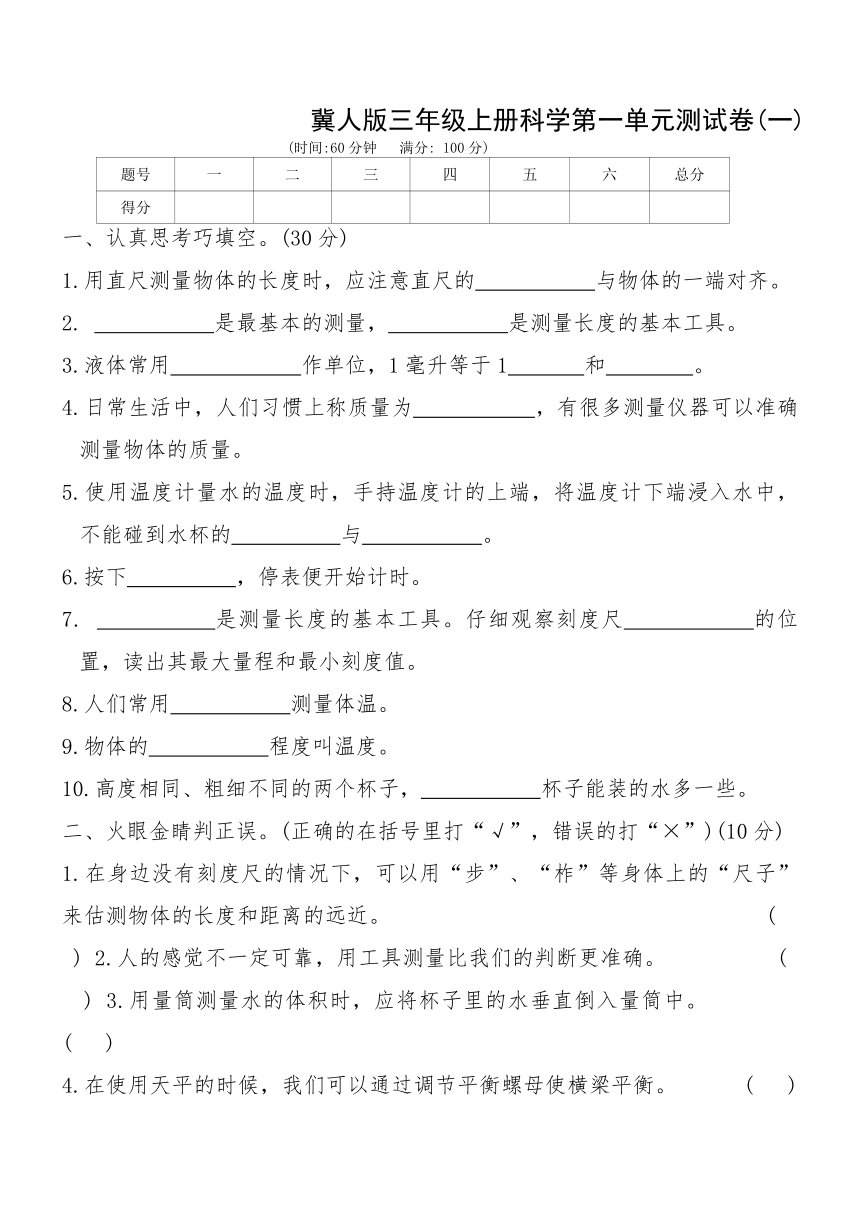 冀人版三年级上册科学第一单元测试卷(一)
(时间:60分钟 满分: 100分)
题号 一 二 三 四 五 六 总分
得分
一、认真思考巧填空。(30分)
1.用直尺测量物体的长度时，应注意直尺的__________与物体的一端对齐。
2. __________是最基本的测量，__________是测量长度的基本工具。
3.液体常用__________作单位，1毫升等于1______和______。
4.日常生活中，人们习惯上称质量为__________，有很多测量仪器可以准确
测量物体的质量。
5.使用温度计量水的温度时，手持温度计的上端，将温度计下端浸入水中，
不能碰到水杯的__________与__________。
6.按下__________，停表便开始计时。
7. __________是测量长度的基本工具。仔细观察刻度尺__________的位
置，读出其最大量程和最小刻度值。
8.人们常用__________测量体温。
9.物体的__________程度叫温度。
10.高度相同、粗细不同的两个杯子，__________杯子能装的水多一些。
二、火眼金睛判正误。(正确的在括号里打“√”，错误的打“×”)(10分)
1.在身边没有刻度尺的情况下，可以用“步”、“柞”等身体上的“尺子”
来估测物体的长度和距离的远近。 (
) 2.人的感觉不一定可靠，用工具测量比我们的判断更准确。 (
) 3.用量筒测量水的体积时，应将杯子里的水垂直倒入量筒中。
( )
4.在使用天平的时候，我们可以通过调节平衡螺母使横梁平衡。 ( )